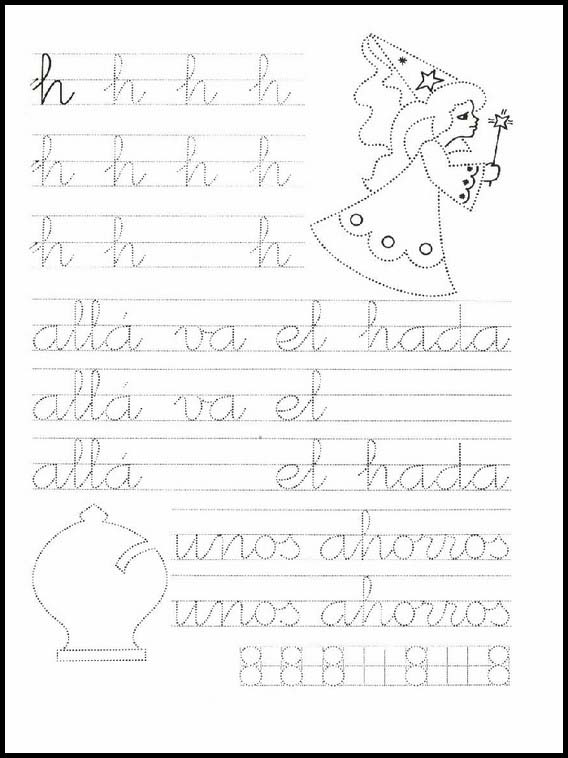 h h h h
h h h h
h h h
allá va el hada
allá va el
allá el hada
unos ahorros
unos ahorros
8 8 8 8 8